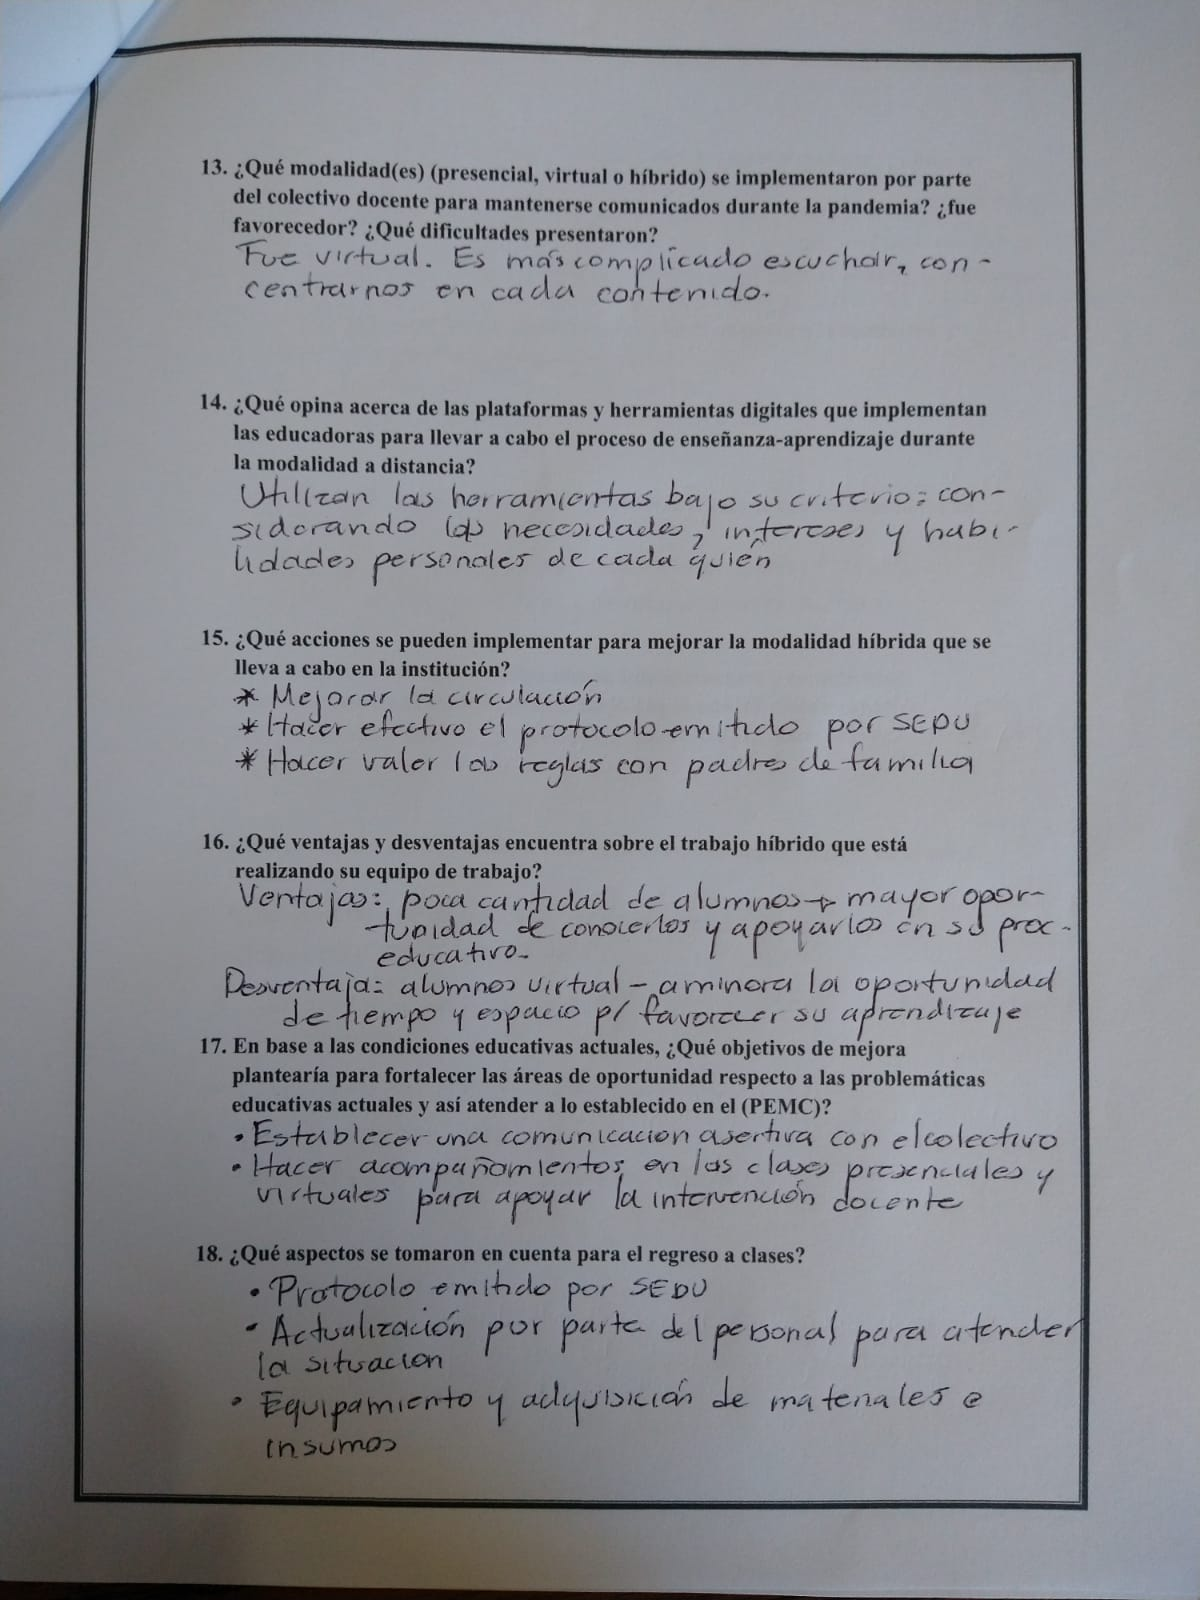 13. ¿Qué modalidad(es) (presencial, virtual o híbrido) se implementaron por parte
del colectivo docente para mantenerse comunicados durante la pandemia? ¿fue
favorecedor? ¿Qué dificultades presentaron?
Fue virtual. Es más complicado escuchar, con-
centrarnos en cada contenido.
14. ¿Qué opina acerca de las plataformas y herramientas digitales que implementan
las educadoras para llevar a cabo el proceso de enseñanza-aprendizaje durante
la modalidad a distancia?
Utilizan las herramientas bajo su criterio: con-
siderando las necesidades, intereses y habi-
lidades personales de cada quién
15. ¿Qué acciones se pueden implementar para mejorar la modalidad híbrida que se
lleva a cabo en la institución?
* Mejorar la circulación
* Hacer efectivo el protocolo emitido por SEDU
* Hacer valer las reglas con padres de familia
16. ¿Qué ventajas y desventajas encuentra sobre el trabajo híbrido que está
realizando su equipo de trabajo?
Ventajas: poca cantidad de alumnos → mayor opor-
tunidad de conocerlos y apoyarlos en su proc.
educativo.
Desventaja: alumnos virtual - aminora la oportunidad
de tiempo y espacio p/ favorecer su aprendizaje
17. En base a las condiciones educativas actuales, ¿Qué objetivos de mejora
plantearía para fortalecer las áreas de oportunidad respecto a las problemáticas
educativas actuales y así atender a lo establecido en el (PEMC)?
• Establecer una comunicacion asertiva con el colectivo
• Hacer acompañamientos en las clases presenciales y
virtuales para apoyar la intervención docente
18. ¿Qué aspectos se tomaron en cuenta para el regreso a clases?
• Protocolo emitido por SEDU
• Actualización por parte del personal para atender
la situacion
• Equipamiento y adquisición de materiales e
insumos